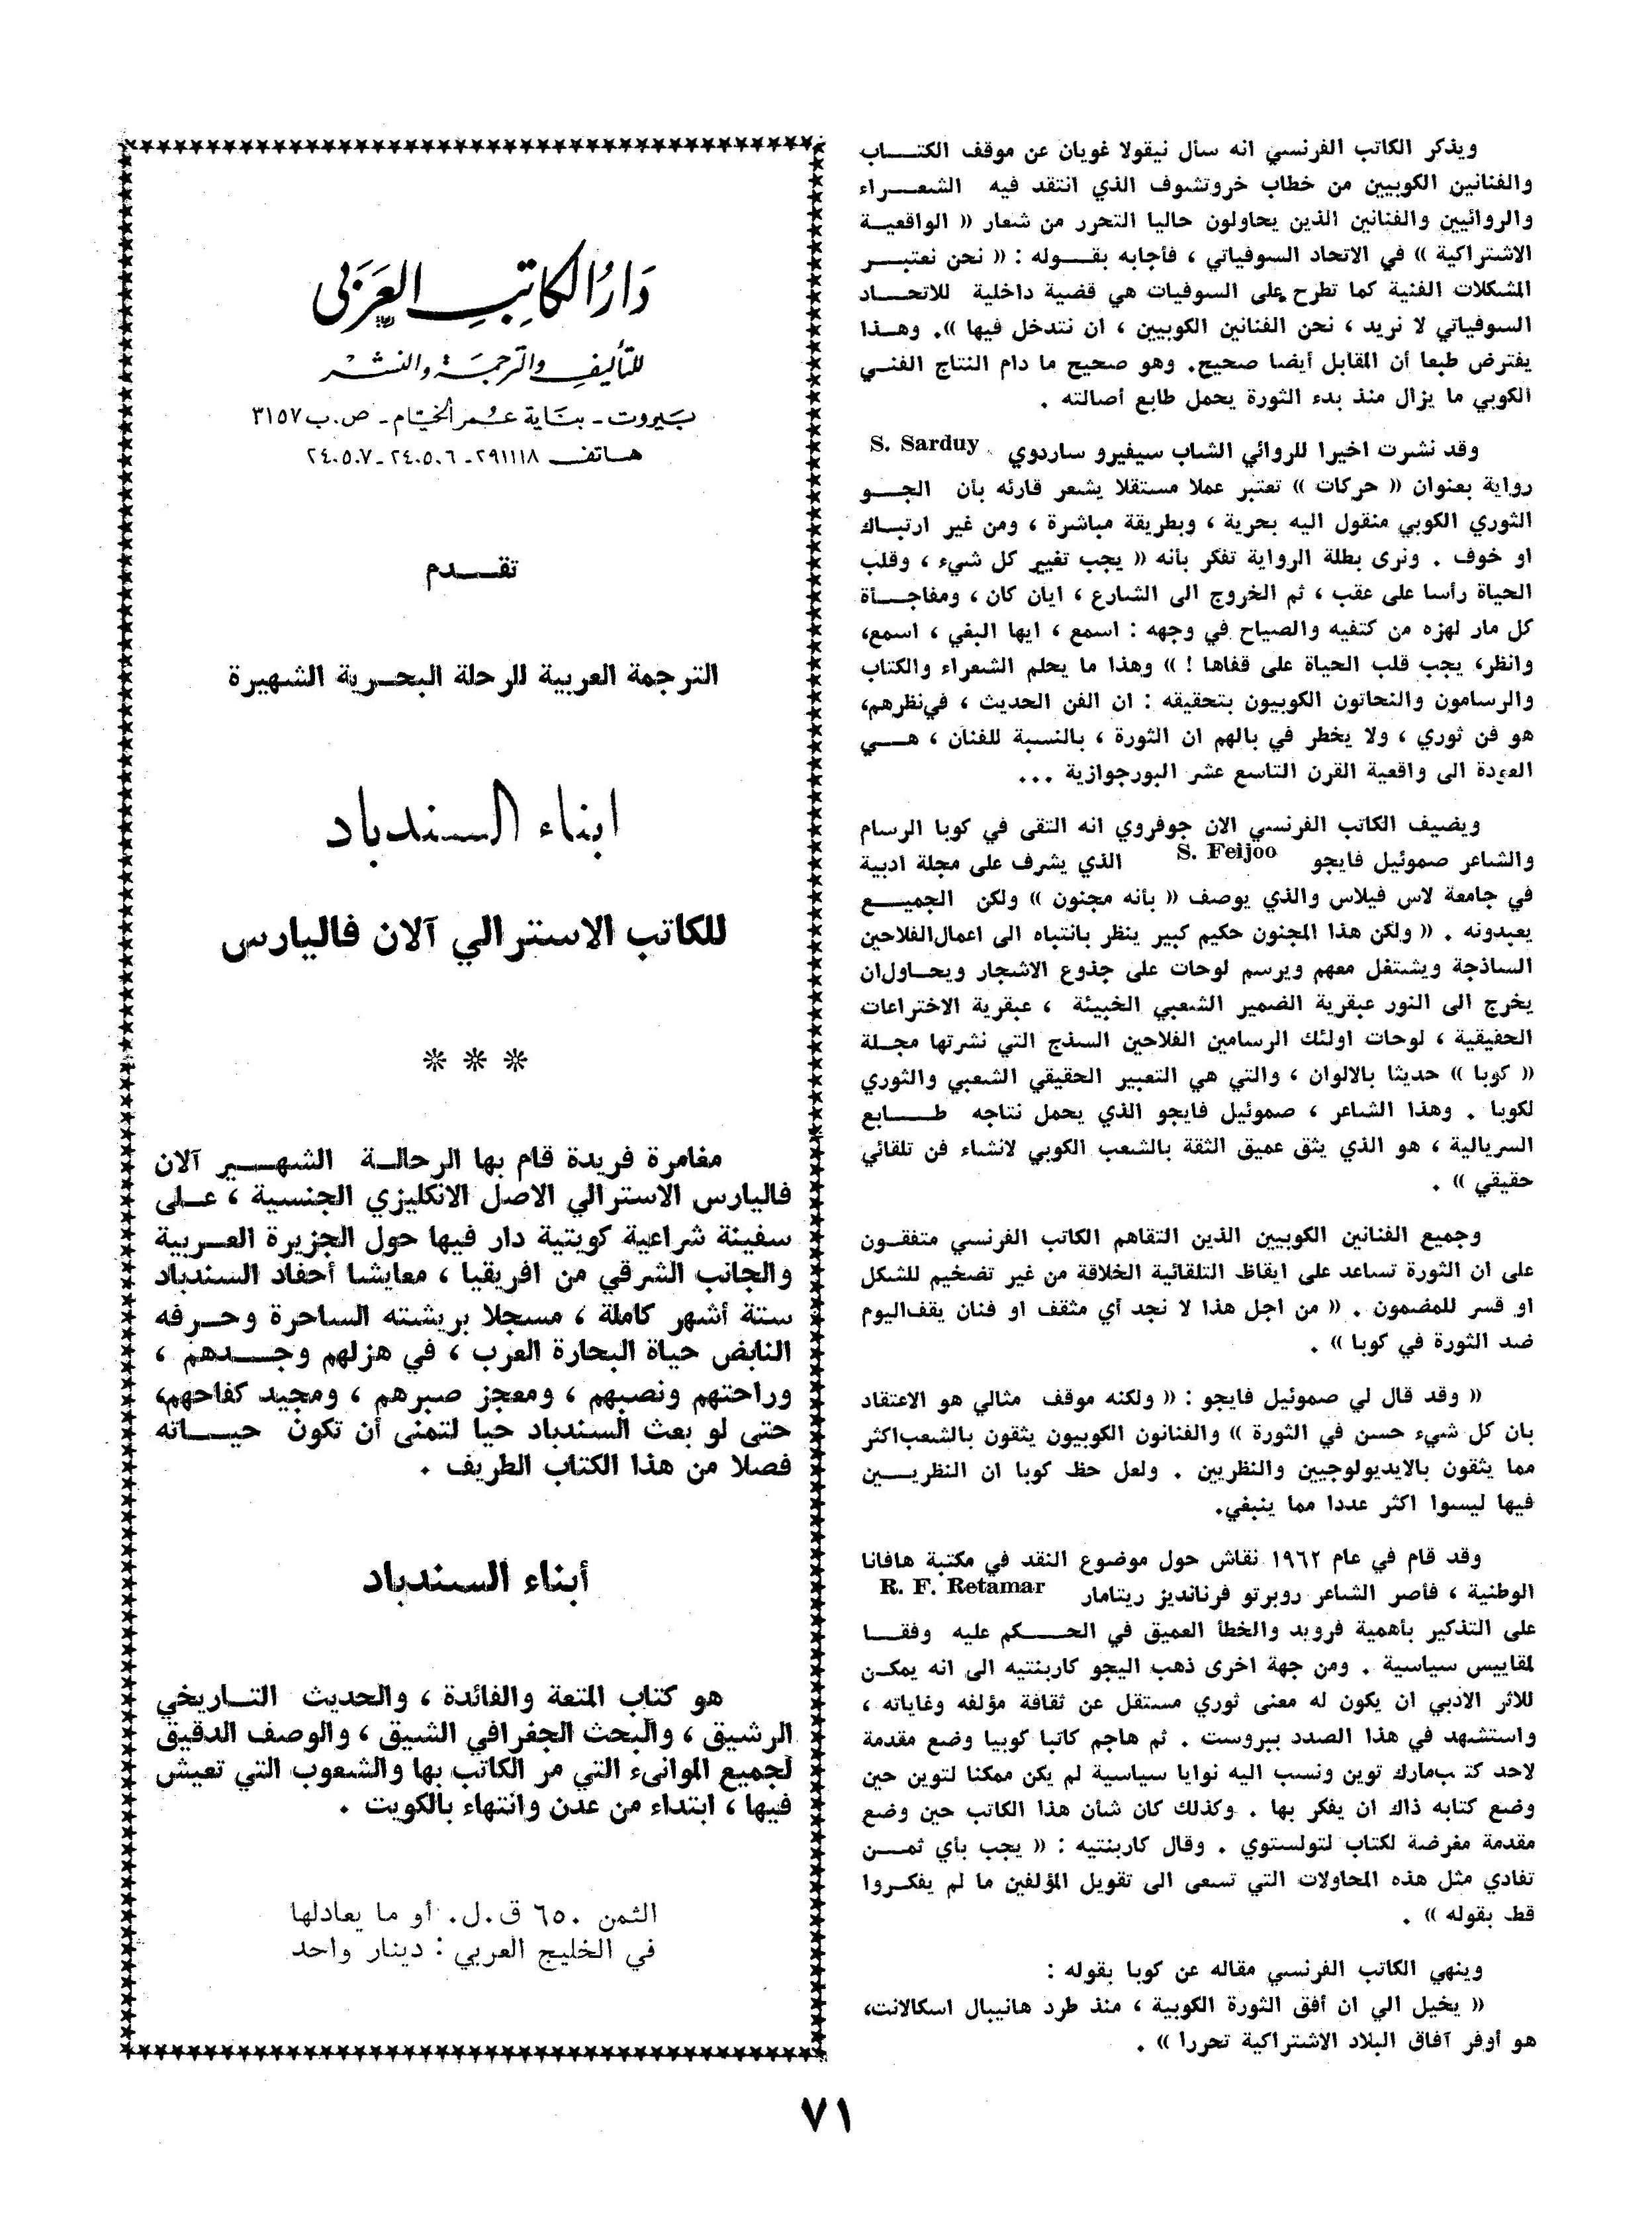 ويذكر الكاتب الفرنسي انه سأل نيقولا غويان عن موقف الكتاب
والفنانين الكوبيين من خطاب خروتشوف الذي انتقد فيه الشعراء
والروائيين والفنانين الذين يحاولون حاليا التحرر من شعار « الواقعية
الاشتراكية » في الاتحاد السوفياتي ، فأجابه بقوله : « نحن نعتبر
المشكلات الفنية كما تطرح على السوفيات هي قضية داخلية للاتحاد
السوفياتي لا نريد ، نحن الفنانين الكوبيين ، ان نتدخل فيها ». وهذا
يفترض طبعا أن المقابل أيضا صحيح. وهو صحيح ما دام النتاج الفني
الكوبي ما يزال منذ بدء الثورة يحمل طابع أصالته .
وقد نشرت اخيرا للروائي الشاب سيفيرو ساردوي S. Sarduy
رواية بعنوان « حركات » تعتبر عملا مستقلا يشعر قارئه بأن الجو
الثوري الكوبي منقول اليه بحرية ، وبطريقة مباشرة ، ومن غير ارتباك
او خوف . ونرى بطلة الرواية تفكر بأنه « يجب تغيير كل شيء ، وقلب
الحياة رأسا على عقب ، ثم الخروج الى الشارع ، ايان كان ، ومفاجأة
كل مار لهزه من كتفيه والصياح في وجهه : اسمع ، ايها البغي ، اسمع،
وانظر، يجب قلب الحياة على قفاها ! » وهذا ما يحلم الشعراء والكتاب
والرسامون والنحاتون الكوبيون بتحقيقه : ان الفن الحديث ، في نظرهم،
هو فن ثوري ، ولا يخطر في بالهم ان الثورة ، بالنسبة للفنان ، هي
العودة الى واقعية القرن التاسع عشر البورجوازية ...
ويضيف الكاتب الفرنسي الان جوفروي انه التقى في كوبا الرسام
والشاعر صموئيل فايجو S. Feijoo الذي يشرف على مجلة ادبية
في جامعة لاس فيلاس والذي يوصف « بأنه مجنون » ولكن الجميع
يعبدونه . « ولكن هذا المجنون حكيم كبير ينظر بانتباه الى اعمال الفلاحين
الساذجة ويشتغل معهم ويرسم لوحات على جذوع الاشجار ويحاول ان
يخرج الى النور عبقرية الضمير الشعبي الخبيئة ، عبقرية الاختراعات
الحقيقية ، لوحات اولئك الرسامين الفلاحين السذج التي نشرتها مجلة
« كوبا » حديثا بالالوان ، والتي هي التعبير الحقيقي الشعبي والثوري
لكوبا . وهذا الشاعر ، صموئيل فايجو الذي يحمل نتاجه طابع
السريالية ، هو الذي يثق عميق الثقة بالشعب الكوبي لانشاء فن تلقائي
حقيقي » .
وجميع الفنانين الكوبيين الذين التقاهم الكاتب الفرنسي متفقون
على ان الثورة تساعد على ايقاظ التلقائية الخلاقة من غير تضخيم للشكل
او قسر للمضمون . « من اجل هذا لا نجد أي مثقف او فنان يقف اليوم
ضد الثورة في كوبا » .
« وقد قال لي صموئيل فايجو : « ولكنه موقف مثالي هو الاعتقاد
بان كل شيء حسن في الثورة » والفنانون الكوبيون يثقون بالشعب اكثر
مما يثقون بالايديولوجيين والنظريين . ولعل حظ كوبا ان النظريين
فيها ليسوا اكثر عددا مما ينبغي.
وقد قام في عام ١٩٦٢ نقاش حول موضوع النقد في مكتبة هافانا
الوطنية ، فأصر الشاعر روبرتو فرنانديز ريتامار R. F. Retamar
على التذكير بأهمية فرويد والخطأ العميق في الحكم عليه وفقا
لمقاييس سياسية . ومن جهة اخرى ذهب اليجو كاربنتيه الى انه يمكن
للاثر الادبي ان يكون له معنى ثوري مستقل عن ثقافة مؤلفه وغاياته ،
واستشهد في هذا الصدد ببروست . ثم هاجم كاتبا كوبيا وضع مقدمة
لاحد كتب مارك توين ونسب اليه نوايا سياسية لم يكن ممكنا لتوين حين
وضع كتابه ذاك ان يفكر بها . وكذلك كان شأن هذا الكاتب حين وضع
مقدمة مغرضة لكتاب لتولستوي . وقال كاربنتيه : « يجب بأي ثمن
تفادي مثل هذه المحاولات التي تسعى الى تقويل المؤلفين ما لم يفكروا
قط بقوله » .
وينهي الكاتب الفرنسي مقاله عن كوبا بقوله :
« يخيل الي ان أفق الثورة الكوبية ، منذ طرد هانيبال اسكالانت،
هو أوفر آفاق البلاد الاشتراكية تحررا » .
دار الكاتب العربي
للتأليف والترجمة والنشر
بيروت - بناية عمر الخيام - ص.ب ٣١٥٧
هاتف ٢٩١١١٨ - ٢٤٠٥٠٦ - ٢٤٠٥٠٧
تقدم
الترجمة العربية للرحلة البحرية الشهيرة
ابناء السندباد
للكاتب الاسترالي آلان فاليارس
* * *
مغامرة فريدة قام بها الرحالة الشهير آلان
فاليارس الاسترالي الاصل الانكليزي الجنسية ، على
سفينة شراعية كويتية دار فيها حول الجزيرة العربية
والجانب الشرقي من افريقيا ، معايشا أحفاد السندباد
ستة أشهر كاملة ، مسجلا بريشته الساحرة وحرفه
النابض حياة البحارة العرب ، في هزلهم وجدهم ،
وراحتهم ونصبهم ، ومعجز صبرهم ، ومجيد كفاحهم،
حتى لو بعث السندباد حيا لتمنى أن تكون حياته
فصلا من هذا الكتاب الطريف .
أبناء السندباد
هو كتاب المتعة والفائدة ، والحديث التاريخي
الرشيق ، والبحث الجغرافي الشيق ، والوصف الدقيق
لجميع الموانىء التي مر الكاتب بها والشعوب التي تعيش
فيها ، ابتداء من عدن وانتهاء بالكويت .
الثمن ٦٥٠ ق.ل. أو ما يعادلها
في الخليج العربي : دينار واحد
٧١